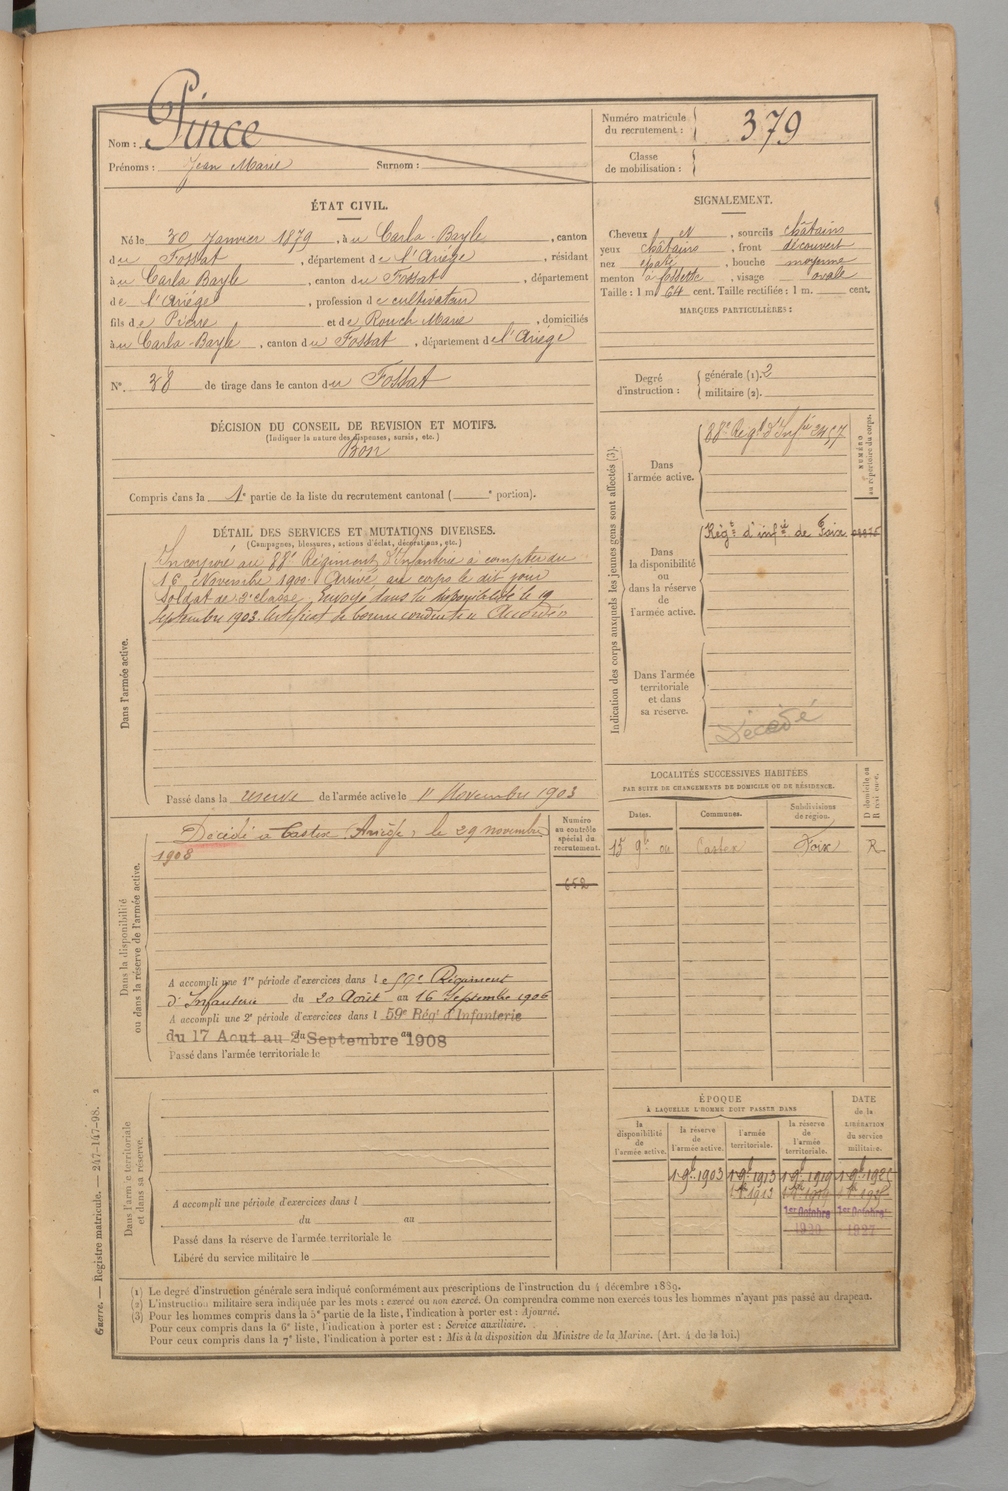 Nom : Pince
Prénoms : Jean Marie Surnom :
Numéro matricule du recrutement : 379
Classe de mobilisation :
ÉTAT CIVIL.
Né le 30 Janvier 1879, à u Carla-Bayle, canton
du Fossat, département de l'Ariège, résidant
à u Carla Bayle, canton du Fossat, département
de l'Ariège, profession de cultivateur
fils de Pierre et de Rouch Marie, domiciliés
à u Carla-Bayle, canton du Fossat, département de l'Ariège
N° 38 de tirage dans le canton du Fossat
SIGNALEMENT.
Cheveux N, sourcils châtains
yeux châtains, front découvert
nez épaté, bouche moyenne
menton à fossette, visage ovale
Taille : 1 m. 64 cent. Taille rectifiée : 1 m. cent.
MARQUES PARTICULIÈRES :
Degré d'instruction : générale (1). 2
militaire (2).
DÉCISION DU CONSEIL DE REVISION ET MOTIFS.
(Indiquer la nature des dispenses, sursis, etc.)
Bon
Compris dans la 1e partie de la liste du recrutement cantonal ( e portion).
DÉTAIL DES SERVICES ET MUTATIONS DIVERSES.
(Campagnes, blessures, actions d'éclat, décorations, etc.)
Dans l'armée active.
Incorporé au 88e Régiment d'Infanterie à compter du
16 Novembre 1900. Arrivé au corps le dit jour
Soldat de 2e classe. Envoyé dans la disponibilité le 19
Septembre 1903. Certificat de bonne conduite " Accordé"
Passé dans la réserve de l'armée active le 1er Novembre 1903
Indication des corps auxquels les jeunes gens sont affectés (3).
NUMÉRO au répertoire du corps.
Dans l'armée active.
88e Régt d'Infie 2457
Dans la disponibilité ou dans la réserve de l'armée active.
Régt d'infie de Foix
Dans l'armée territoriale et dans sa réserve.
Décédé
Dans la disponibilité ou dans la réserve de l'armée active.
Décédé à Castex (Ariège) le 29 novembre
1908
Numéro au contrôle spécial du recrutement.
652
A accompli une 1re période d'exercices dans l e 59e Régiment
d'Infanterie du 20 Août au 16 Septembre 1906
A accompli une 2e période d'exercices dans l 59e Régt d'Infanterie
du 17 Aout au 2 Septembre 1908
Passé dans l'armée territoriale le
LOCALITÉS SUCCESSIVES HABITÉES
PAR SUITE DE CHANGEMENTS DE DOMICILE OU DE RÉSIDENCE.
Dates. Communes. Subdivisions de région. D domicile ou R résidence.
15 9bre Castex Foix R
Dans l'armée territoriale et dans sa réserve.
A accompli une période d'exercices dans l
du au
Passé dans la réserve de l'armée territoriale le
Libéré du service militaire le
ÉPOQUE
À LAQUELLE L'HOMME DOIT PASSER DANS
la disponibilité de l'armée active.
la réserve de l'armée active.
l'armée territoriale.
la réserve de l'armée territoriale.
DATE de la LIBÉRATION du service militaire.
1 9bre 1903 1 9bre 1913 1 9bre 1919
1913 1919
1er Octobre 1er Octobre
1927
(1) Le degré d'instruction générale sera indiqué conformément aux prescriptions de l'instruction du 4 décembre 1889.
(2) L'instruction militaire sera indiquée par les mots : exercé ou non exercé. On comprendra comme non exercés tous les hommes n'ayant pas passé au drapeau.
(3) Pour les hommes compris dans la 5e partie de la liste, l'indication à porter est : Ajourné.
Pour ceux compris dans la 6e liste, l'indication à porter est : Service auxiliaire.
Pour ceux compris dans la 7e liste, l'indication à porter est : Mis à la disposition du Ministre de la Marine. (Art. 4 de la loi.)
Guerre. — Registre matricule. — 247-147-98. 2